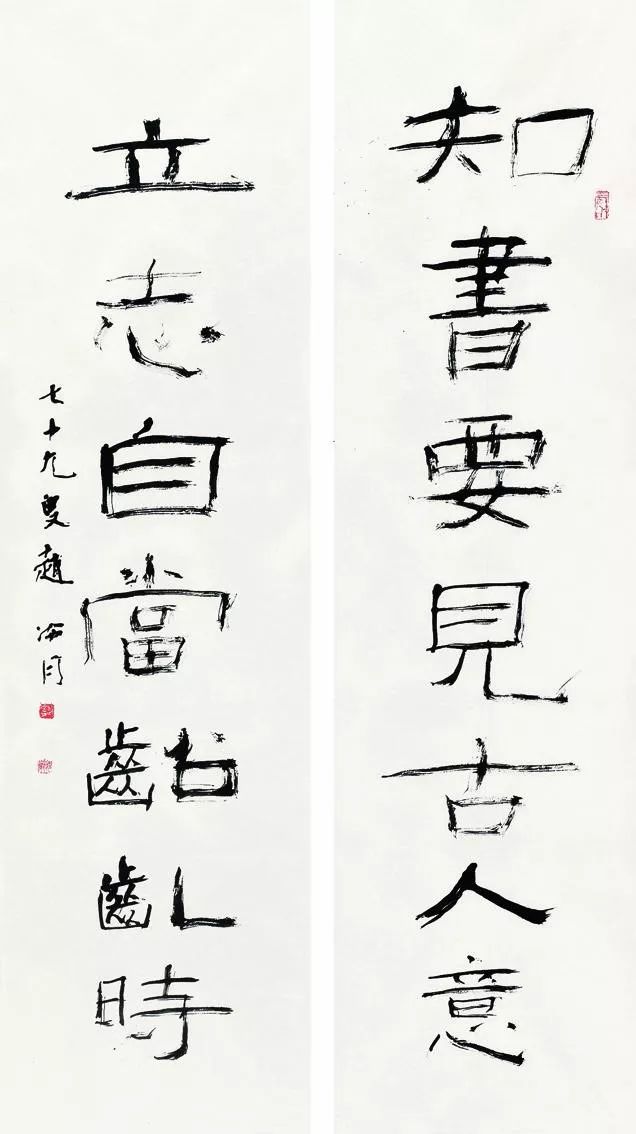 知書要見古人意
立志自當齠齔時
七十九叟趙冷月